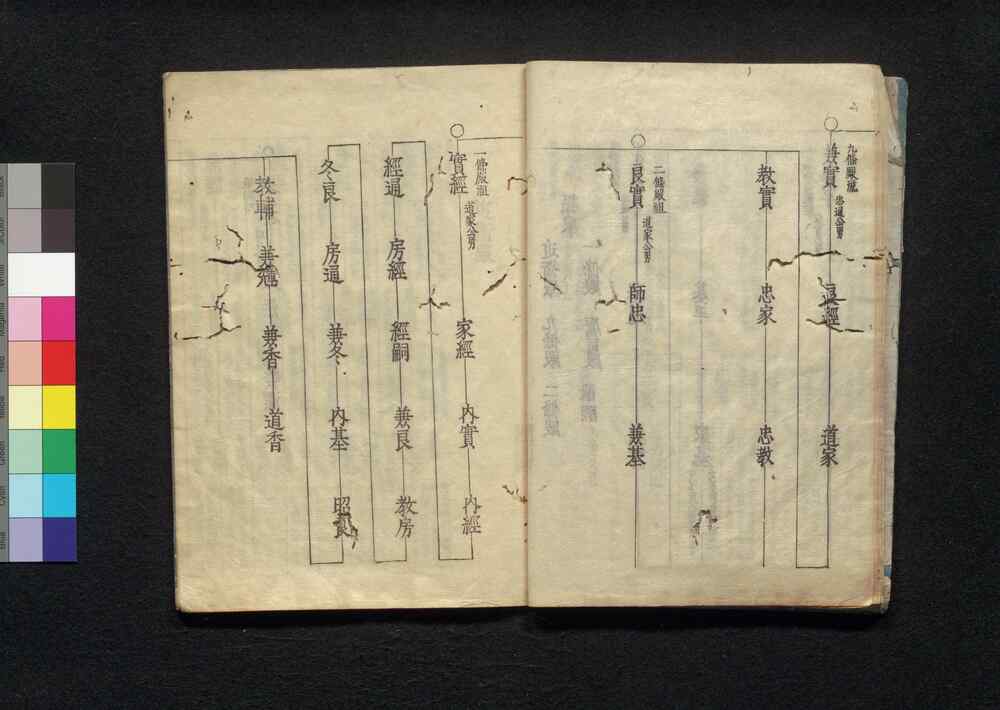 九條殿流
兼實 忠通公男 良經 道家
教實 忠家 忠教
二條殿祖
良實 道家公男 師忠 兼基
一條殿祖
實經 道家公男 家經 內實 內經
經通 房經 經嗣 兼良 教房
冬良 房通 兼冬 內基 昭良
教輔 兼香 道香